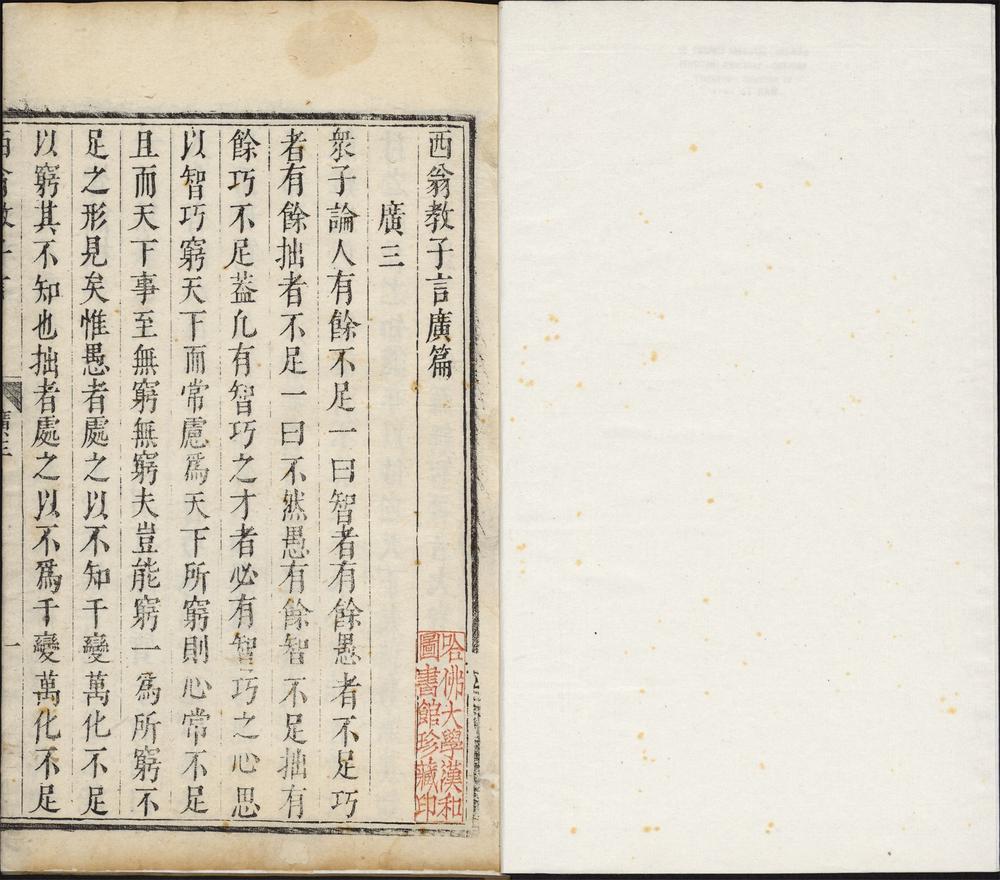 西翁教子言廣篇
廣三
衆子論人有餘不足一曰智者有餘愚者不足巧
者有餘拙者不足一曰不然愚有餘智不足拙有
餘巧不足葢凢有智巧之才者必有智巧之心思
以智巧窮天下而常慮爲天下所窮則心常不足
且而天下事至無窮無窮夫豈能窮一爲所窮不
足之形見矣惟愚者處之以不知千變萬化不足
以窮其不知也拙者處之以不爲千變萬化不足
西翁教子言
廣三
一
哈佛大學漢和
圖書館珍藏印